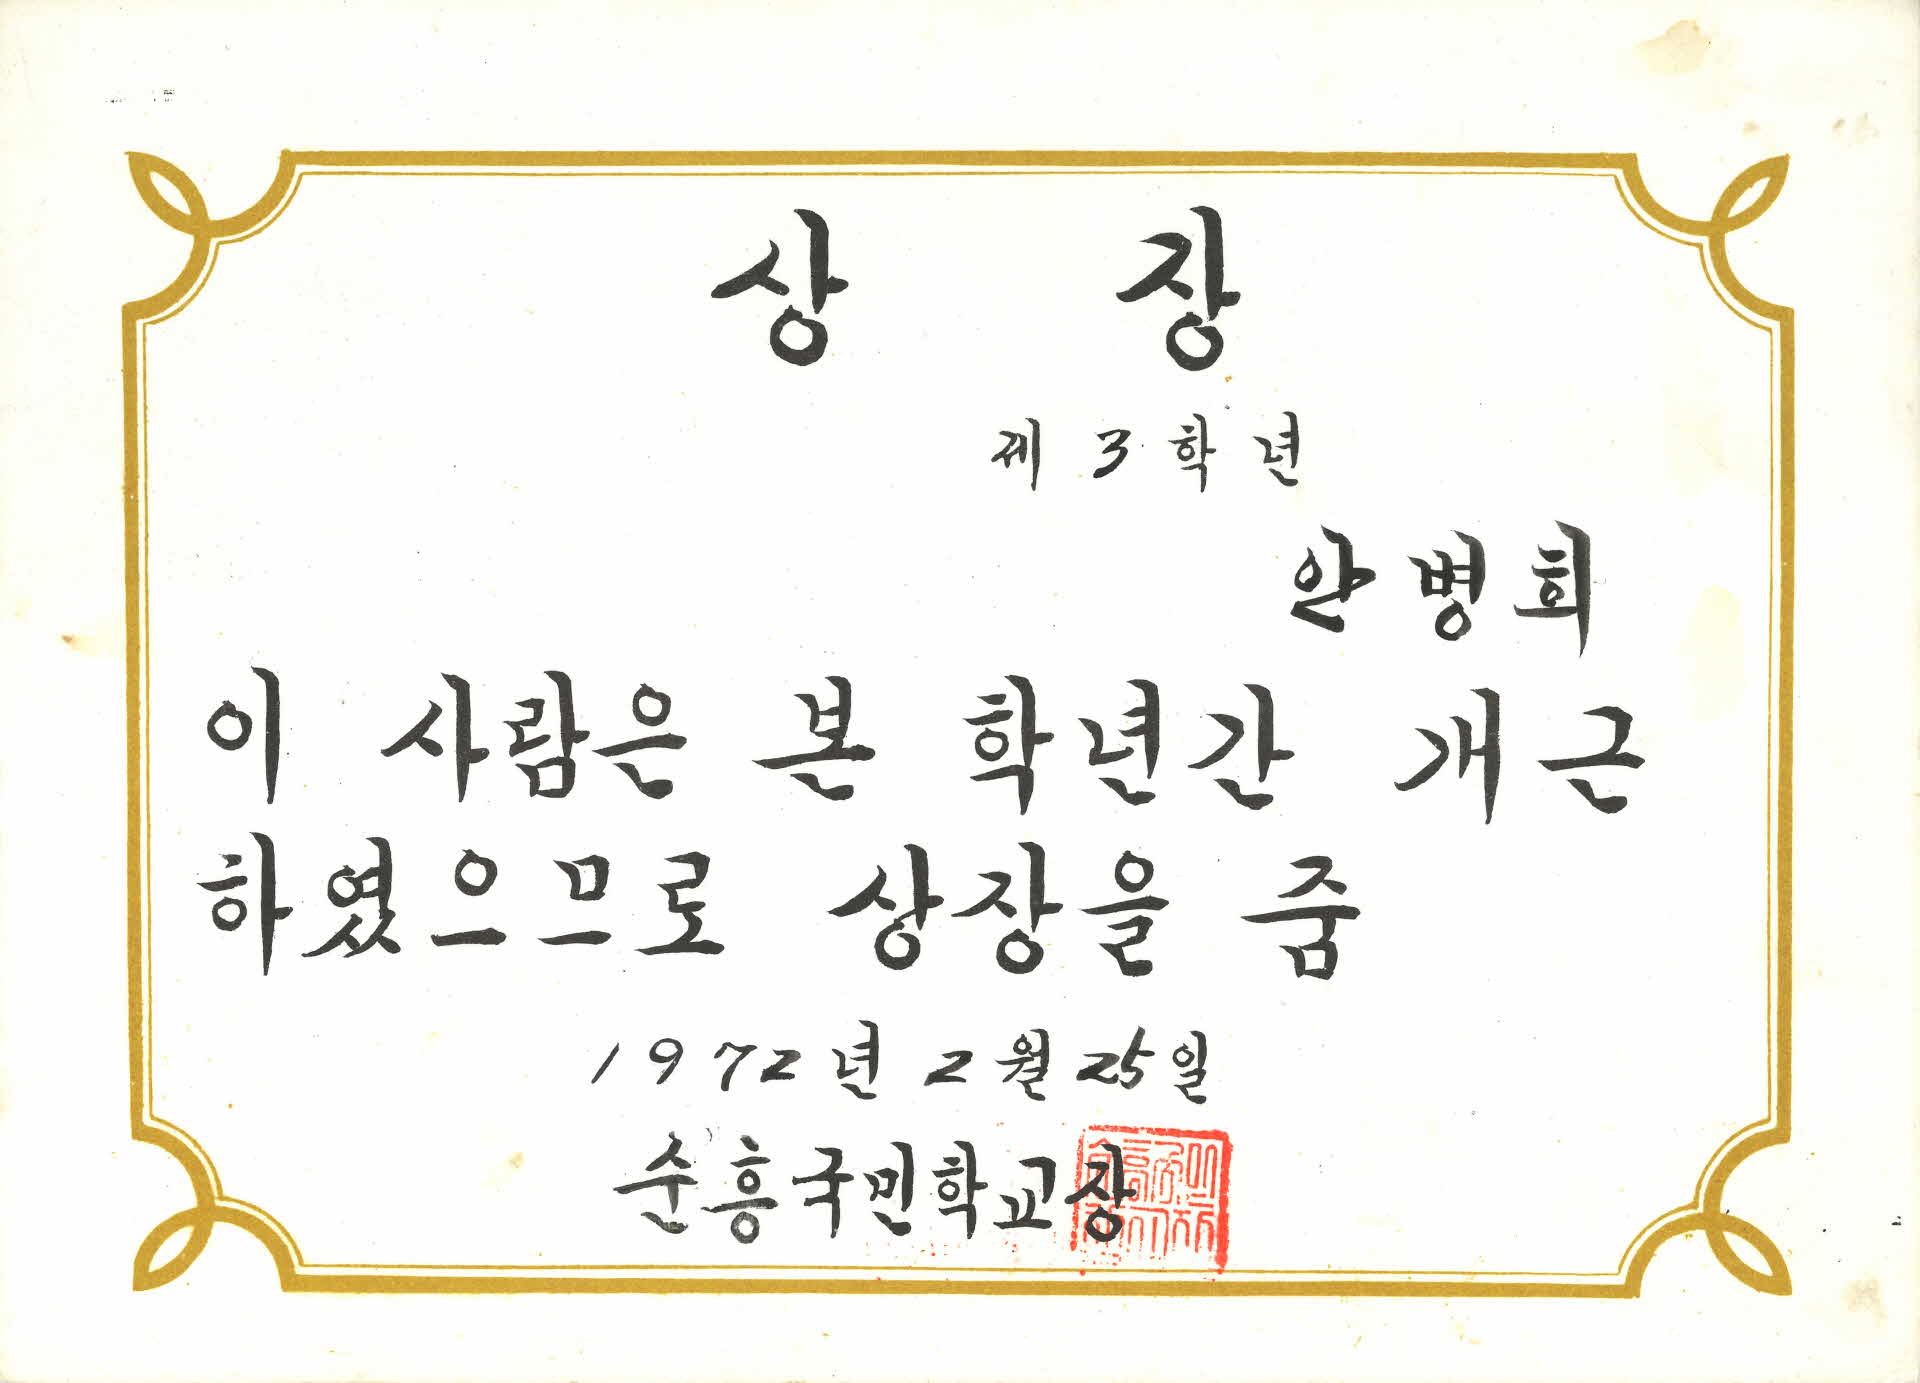 상 장
제 3 학 년
안 병 희
이 사람은 본 학년간 개근
하였으므로 상장을 줌
1972년 2월 25일
순흥국민학교장